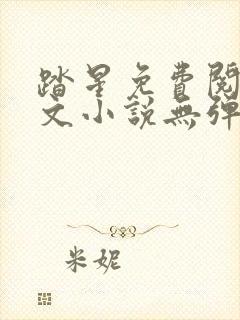 踏星免費閱
文小說無彈
米妮